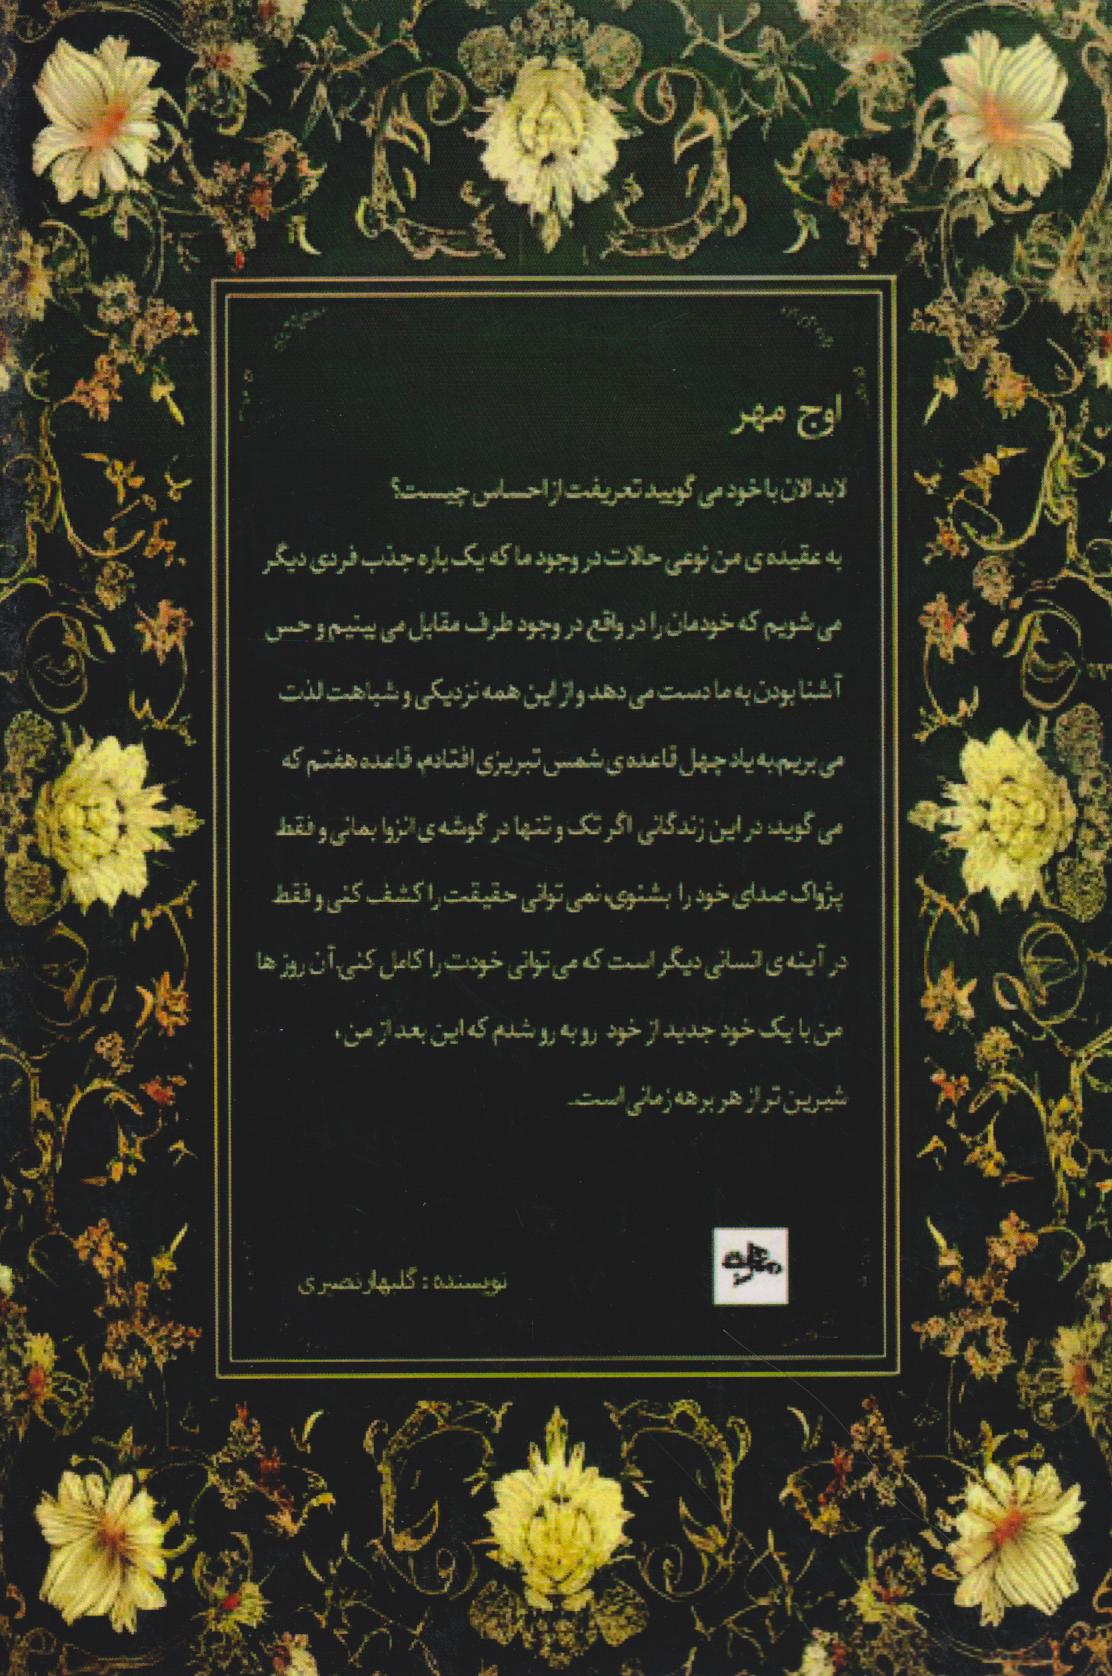 اوج مهر
لابد الان با خود می گویید تعریفت از احساس چیست؟
به عقیده ی من نوعی حالات در وجود ما که یک باره جذب فردی دیگر
می شویم که خودمان را در واقع در وجود طرف مقابل می بینیم و حس
آشنا بودن به ما دست می دهد و از این همه نزدیکی و شباهت لذت
می بریم.به یاد چهل قاعده ی شمس تبریزی افتادم، قاعده هفتم که
می گوید: در این زندگانی اگر تک و تنها در گوشه ی انزوا بمانی و فقط
پژواک صدای خود را بشنوی، نمی توانی حقیقت را کشف کنی و فقط
در آینه ی انسانی دیگر است که می توانی خودت را کامل کنی.آن روز ها
من با یک خود جدید از خود رو به رو شدم که این بعد از من ،
شیرین تر از هر برهه زمانی است..
نویسنده : گلبهار نصیری